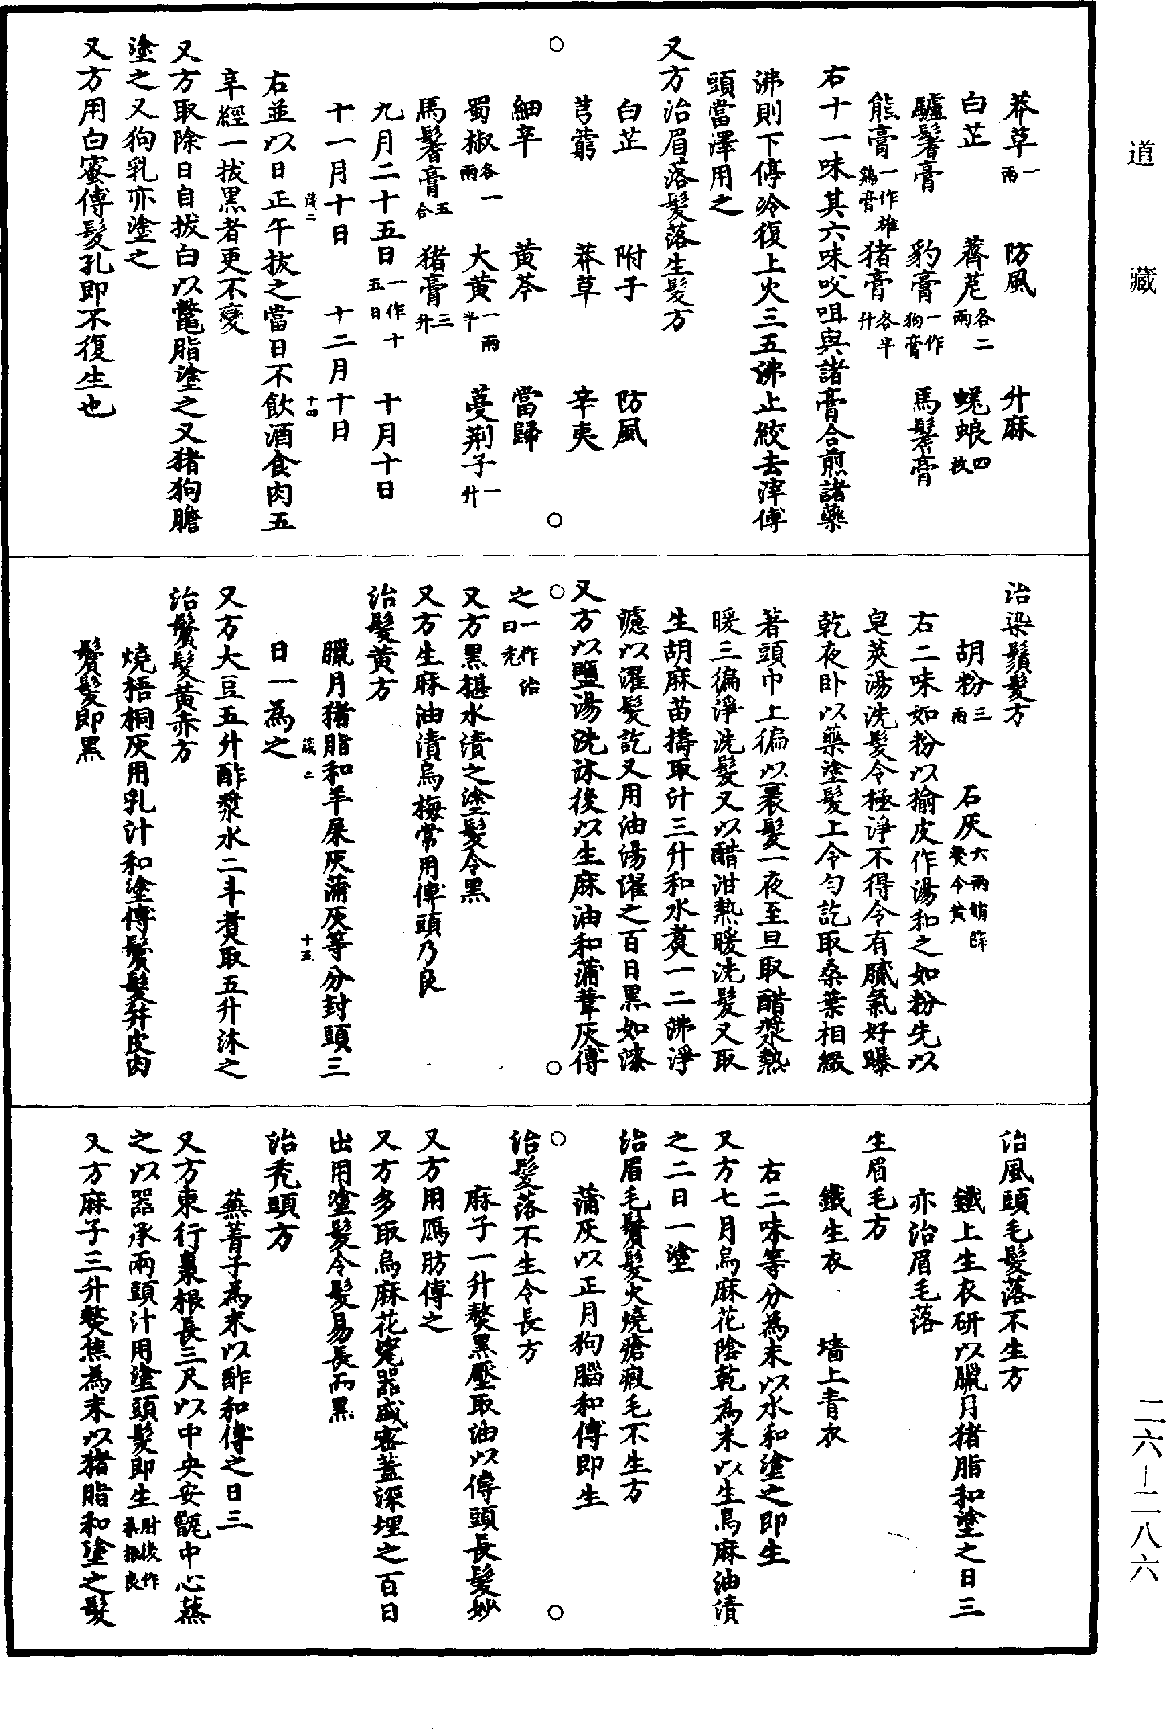 道藏
莽草一兩　防風　升麻
白芷　薺苨各二兩　蜣蜋四枚
驢鬐膏　豹膏一作狗膏　馬鬐膏
熊膏一作雄鷄膏　猪膏各半升
右十一味其六味㕮咀與諸膏合煎諸藥
沸則下停冷復上火三五沸止絞去滓傅
頭當澤用之
又方治眉落髮落生髮方
白芷　附子　防風
芎藭　莽草　辛夷
細辛　黃芩　當歸
蜀椒各一兩　大黃一兩半　蔓荊子一升
馬鬐膏五合　猪膏三升
九月二十五日一作十五日　十月十日
十一月十日　十二月十日
右並以日正午拔之當日不飲酒食肉五
辛經一拔黑者更不變
又方取除日自拔白以鼈脂塗之又猪狗膽
塗之又狗乳亦塗之
又方用白蜜傅髮孔即不復生也
治染鬚髮方
胡粉三兩　石灰六兩
右二味如粉以榆皮作湯和之如粉先以
皂莢湯洗髮令極淨不得令有膩氣好曝
乾夜卧以藥塗髮上令勻訖取桑葉相綴
著頭巾上徧以裹髮一夜至旦取醋漿熱
暖三徧淨洗髮又以醋泔熱暖洗髮又取
生胡麻苗擣取汁三升和水煮一二沸淨
濾以濯髮訖又用油湯濯之百日黑如漆
又方以鹽湯洗沐後以生麻油和蒲葦灰傅
之一作治日光
又方黑椹水漬之塗髮令黑
又方生麻油漬烏梅常用傅頭乃良
治髮黃方
臘月猪脂和羊屎灰蒲灰等分封頭三
日一為之
又方大豆五升酢漿水二斗煮取五升沐之
治鬢髮黃赤方
燒梧桐灰用乳汁和塗傅鬢髮幷皮肉
鬢髮即黑
治風頭毛髮落不生方
鐵上生衣研以臘月猪脂和塗之日三
亦治眉毛落
生眉毛方
鐵生衣　墻上青衣
右二味等分為末以水和塗之即生
又方七月烏麻花陰乾為末以生烏麻油漬
之二日一塗
治眉毛鬢髮火燒瘡瘢毛不生方
蒲灰以正月狗腦和傅即生
治髮落不生令長方
麻子一升熬黑壓取油以傅頭長髮妙
又方用鴈肪傅之
又方多取烏麻花甆器盛密蓋深埋之百日
出用塗髮令髮易長而黑
治禿頭方
蕪菁子為末以酢和傅之日三
又方東行棗根長三尺以中央安甑中心蒸
之以器承兩頭汁用塗頭髮即生肘後作桑根良
又方麻子三升熬焦為末以猪脂和塗之髮
二六—二八六